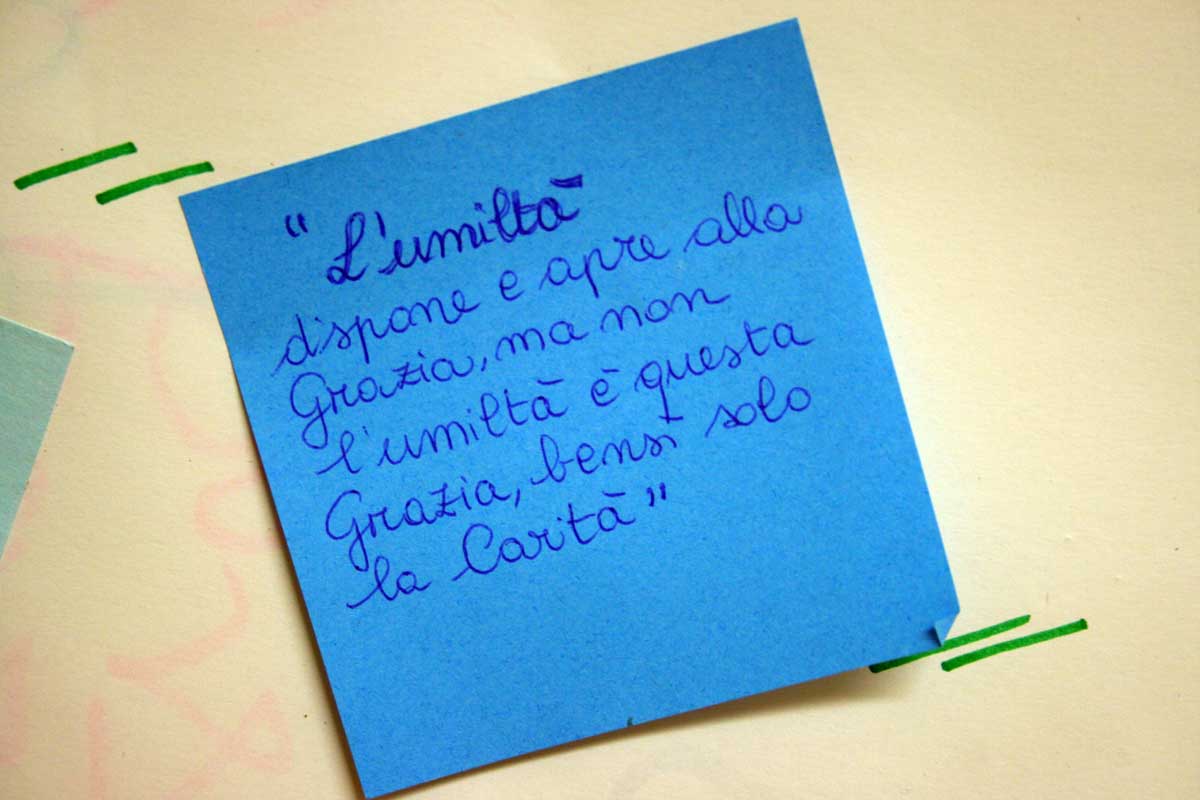 "L'umiltà
dispone e apre alla
Grazia, ma non
l'umiltà è questa
Grazia, bensì solo
la Carità"